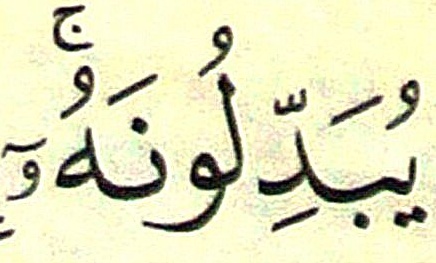 يُبَدِّلُونَهُۥٓۚ